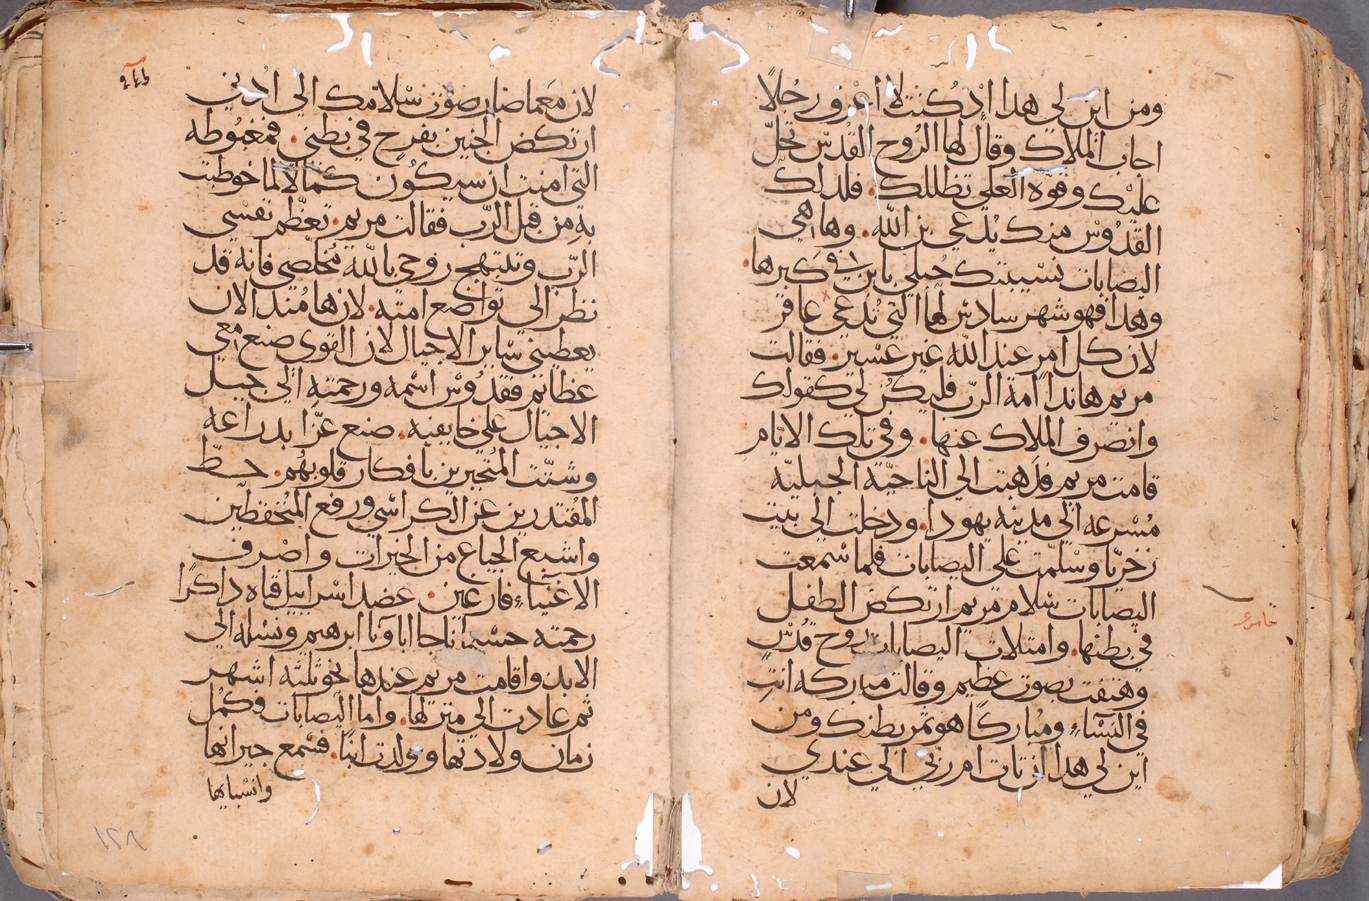 ومن اين لي هدا اذ كنت لا اعرف رجالًا
اجاب الملاك وقال لها الرُوح القدُس تحلّ
عليْك وقوه العلي تظللك. فلداك
القدُوسْ منك يُدعي بن اللّه. وها هي
اليصابات نسْيبتك حُبلي بابن في كبرها.
وهدا فهو شهر سادسْ لها التي تُدعي عاقر
لان كل امر عند اللّه غير عسْير. فقالت
مريم هاندا امة الربّ فليكُن لي كقولك
وانصرف الملاك عنها. وفي تلك الايام
قامت مريم فدهبت الي الناحيّة الجبليّه
مُسْرعه الي مدينه يهودا. ودخلت الي بيت
زخريّا وسْلمّت علي اليصابات فلما سْمعت
اليصابات سْلام مريم ارتكض الطفل
في بطنها. وامتلات اليصابات روح قُدسْ
وهتفت بصوت عظيم وقالت مباركه انتِ
في النسَآء ومُباركًا هو ثمر بطنك ومن
اين لي هدا ان تات ام ربّي الي عندي
لان
لان معما صار صوْت سْلامك الي ادني
ارتكض الجنين بفرح في بطني. فمغبُوطه
التي امنت ان سيكُون كمالًا لما خوطبت
به من قبل الربّ فقالت مريم. تعظّم نفسْي
الربّ وتبتهج روحي باللّه مُخلّصي فانه قد
نظر الي تواضع امته. لان ها مُند الان
يعطيني سْاير الاجيال لان القوي صنع معي
عظايم فقدُوسْ اسْمه ورحمته الي جيل
الاجيال علي خايفيه. صنع عزًا بدراعه
وشتّت المُتجبرين بافكار قلوبهُم. حطّ
المُقتدرين عن الكراسْي ورفع المُتخفظين
واشبع الجياع من الخيرات واصْرف
الاغنيآء فارغين. عضد اسْراييل فتاه داكرًا
رحمته حسْبما ناجا اباونا ابرهيم ونسْله الي
الابد واقامت مريم عندها نحو ثلثه اشهر
ثم عادت الي منزلها. واما اليصابات فكمُل
زمان ولادتها وولدت ابنًا. فسْمع جيرانها
وانسْبايها
١٢٨